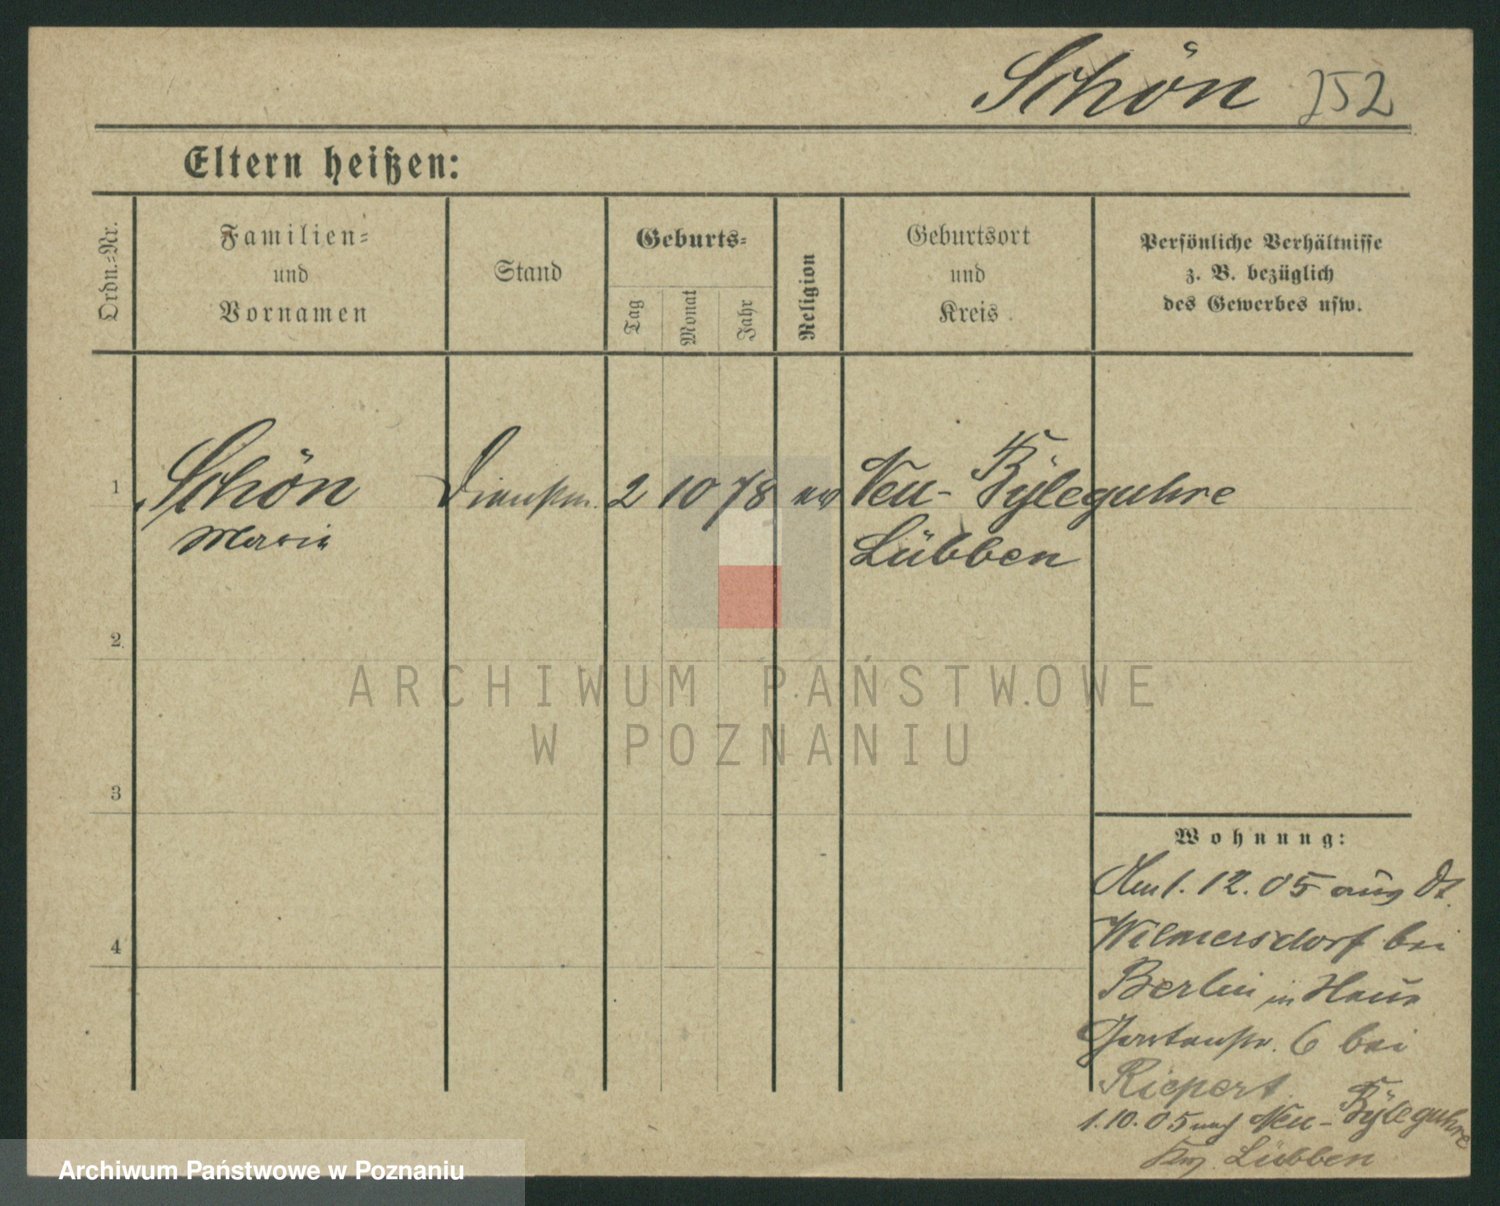 Schön 252
Eltern heißen:
Ordn.-Nr.
Familien-
und
Vornamen
Stand
Geburts-
Tag
Monat
Jahr
Religion
Geburtsort
und
Kreis
Persönliche Verhältnisse
z. B. bezüglich
des Gewerbes usw.
1 Schön Dienstm. 2 10 78 ev Neu-Byleguhre
Marie Lübben
2
3
4
Wohnung:
12. 05 aus Dt.
Wilmersdorf bei
Berlin in Haus
Gartenstr. 6 bei
Riepert
1.10.05 nach Neu-Byleguhre
Lübben
ARCHIWUM PAŃSTWOWE
W POZNANIU
Archiwum Państwowe w Poznaniu